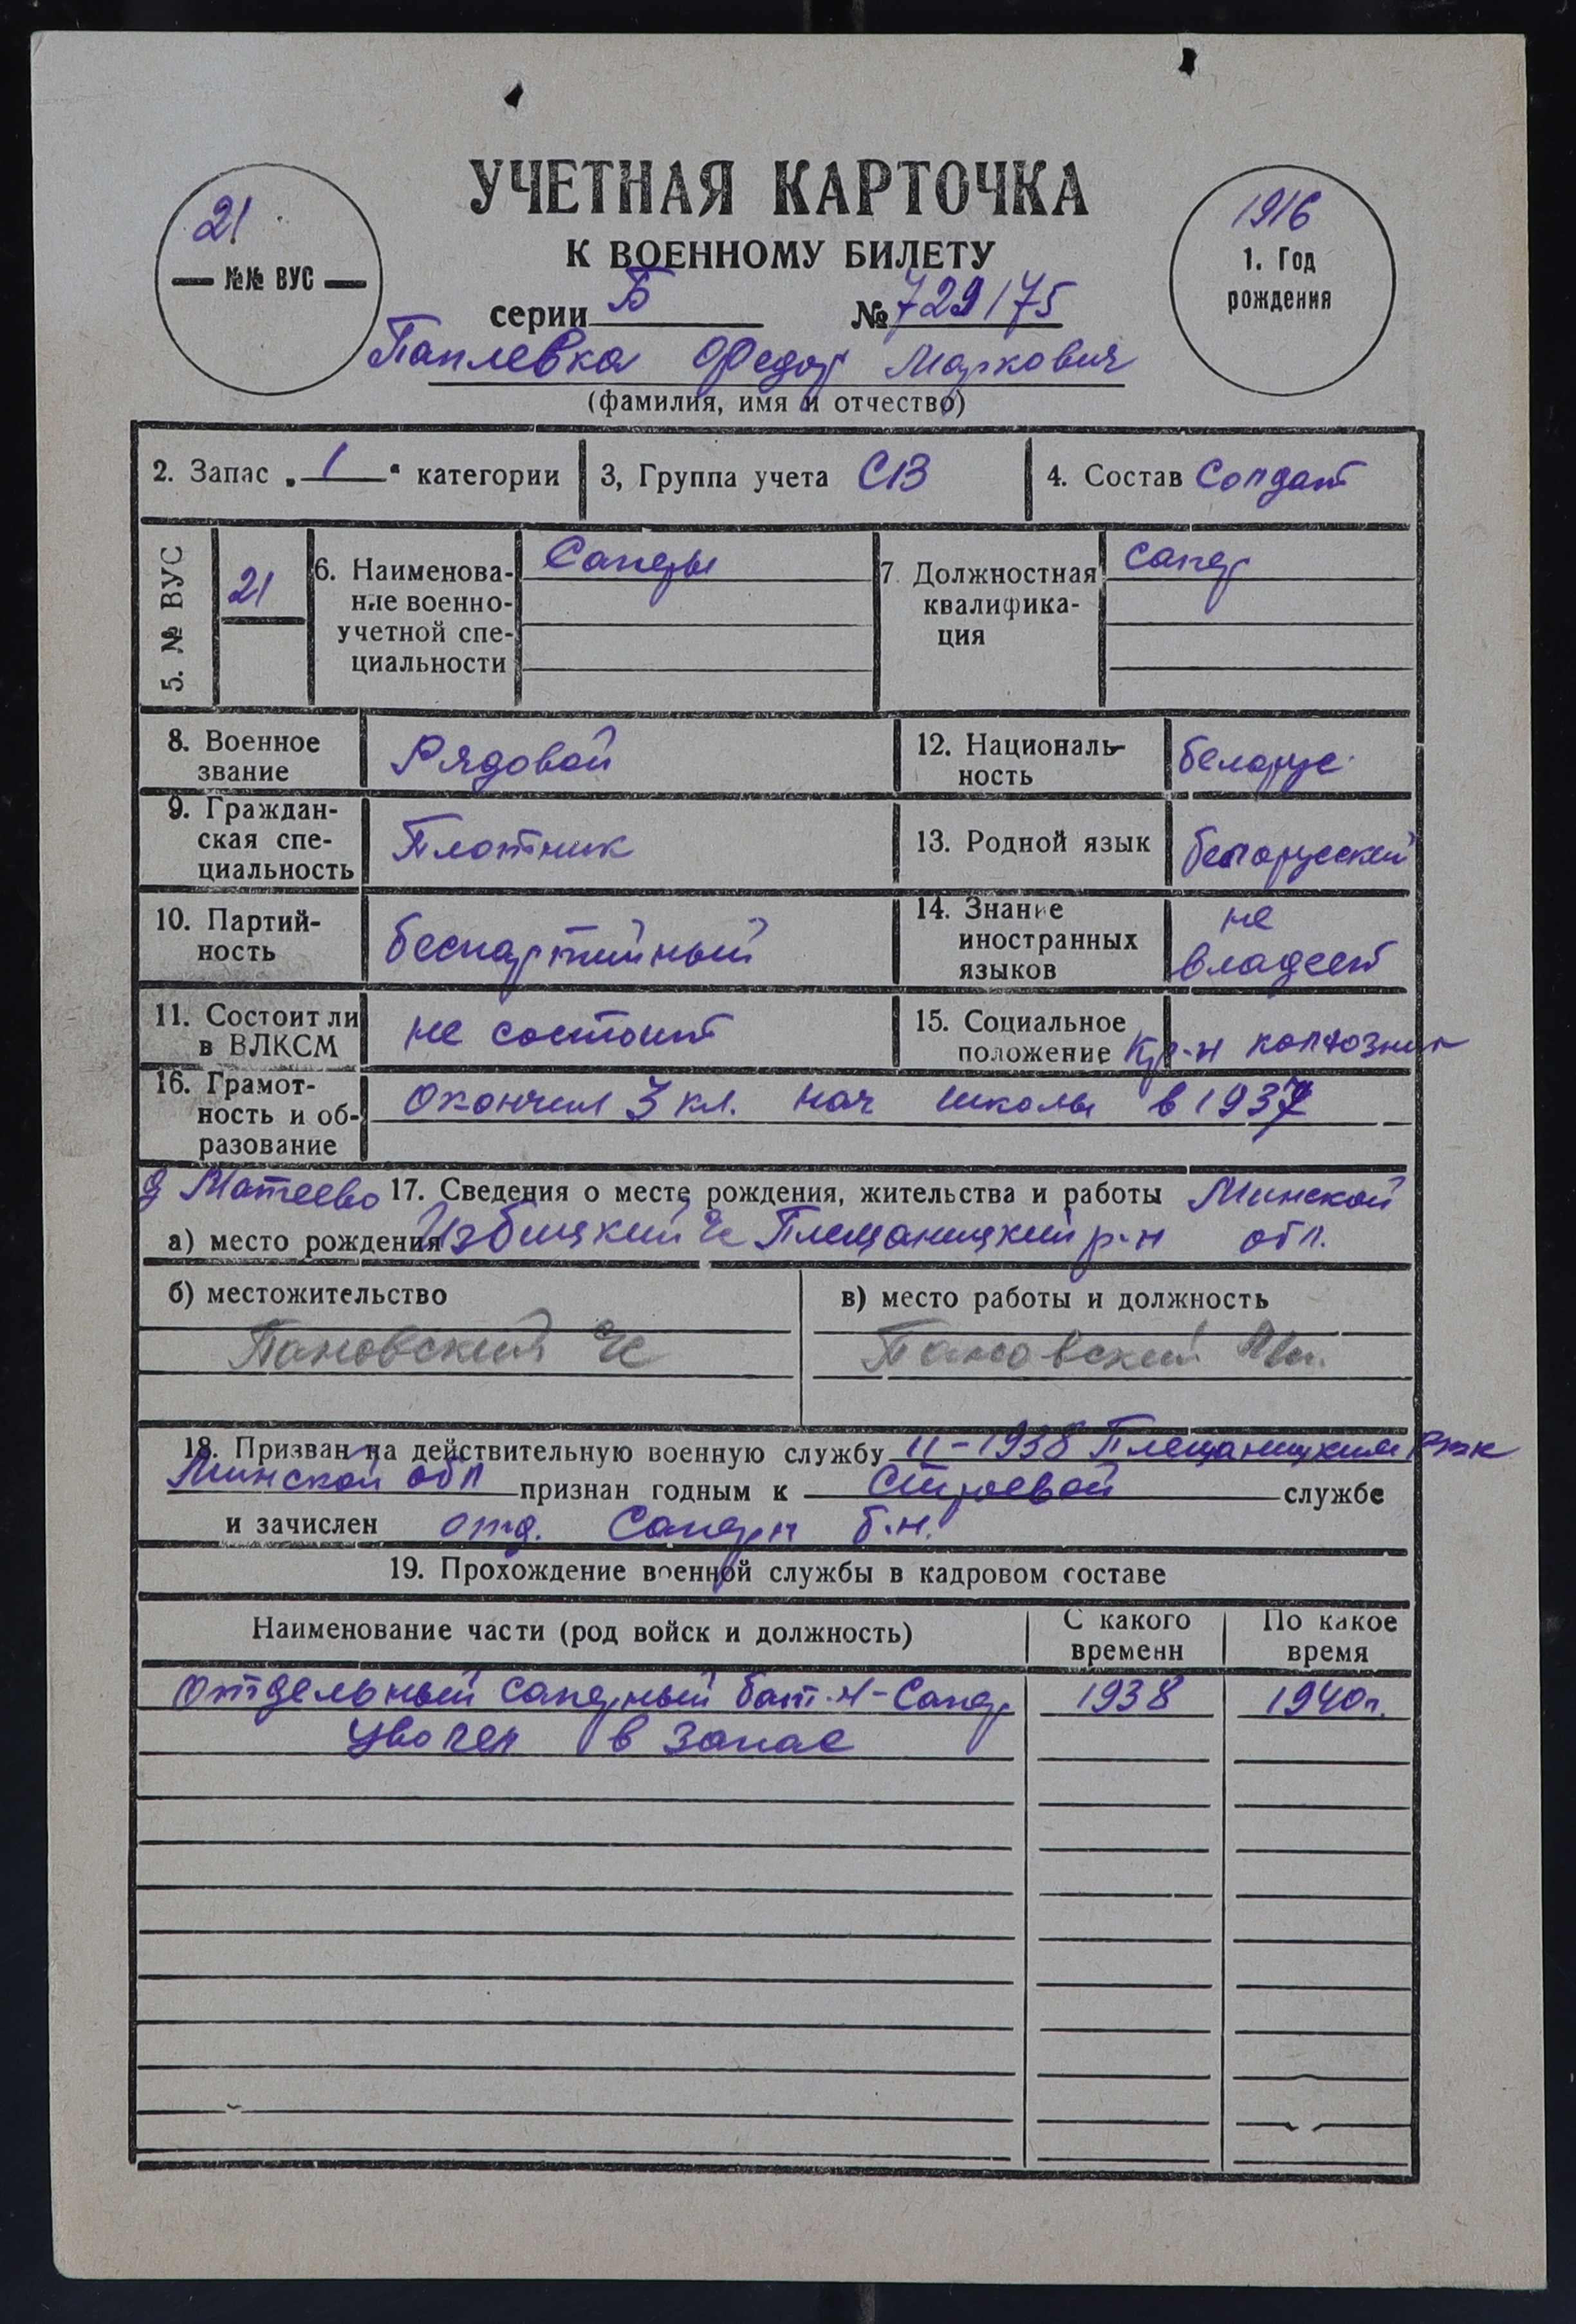 УЧЕТНАЯ КАРТОЧКА
К ВОЕННОМУ БИЛЕТУ
21
— №№ ВУС —
1916
1. Год
рождения
серии Б № 729175
Паплевка Федор Маркович
(фамилия, имя и отчество)
2. Запас „ 1 “ категории
3, Группа учета СВ
4. Состав Солдат
5. № ВУС
21
6. Наименова-
ние военно-
учетной спе-
циальности
Саперы
7. Должностная
квалифика-
ция
сапер
8. Военное
звание
Рядовой
12. Националь-
ность
беларус
9. Граждан-
ская спе-
циальность
Плотник
13. Родной язык
беларусский
10. Партий-
ность
беспартийный
14. Знание
иностранных
языков
не
владеет
11. Состоит ли
в ВЛКСМ
не состоит
15. Социальное
положение Кр-н колхозник
16. Грамот-
ность и об-
разование
Окончил 3 кл. нач школы в 1937
д Матеево 17. Сведения о месте рождения, жительства и работы Минской
а) место рождения Избицкий с/с Плещаницкий р-н обл.
б) местожительство
Пановский с/с
в) место работы и должность
Пановский
18. Призван на действительную военную службу 11-1938 Плещаницким РВК
Минской обл признан годным к Строевой службе
и зачислен отд. Саперн б.н.
19. Прохождение военной службы в кадровом составе
Наименование части (род войск и должность)
С какого
времени
По какое
время
Отдельный саперный бат-н - Сапер 1938 1940г.
Уволен в запас